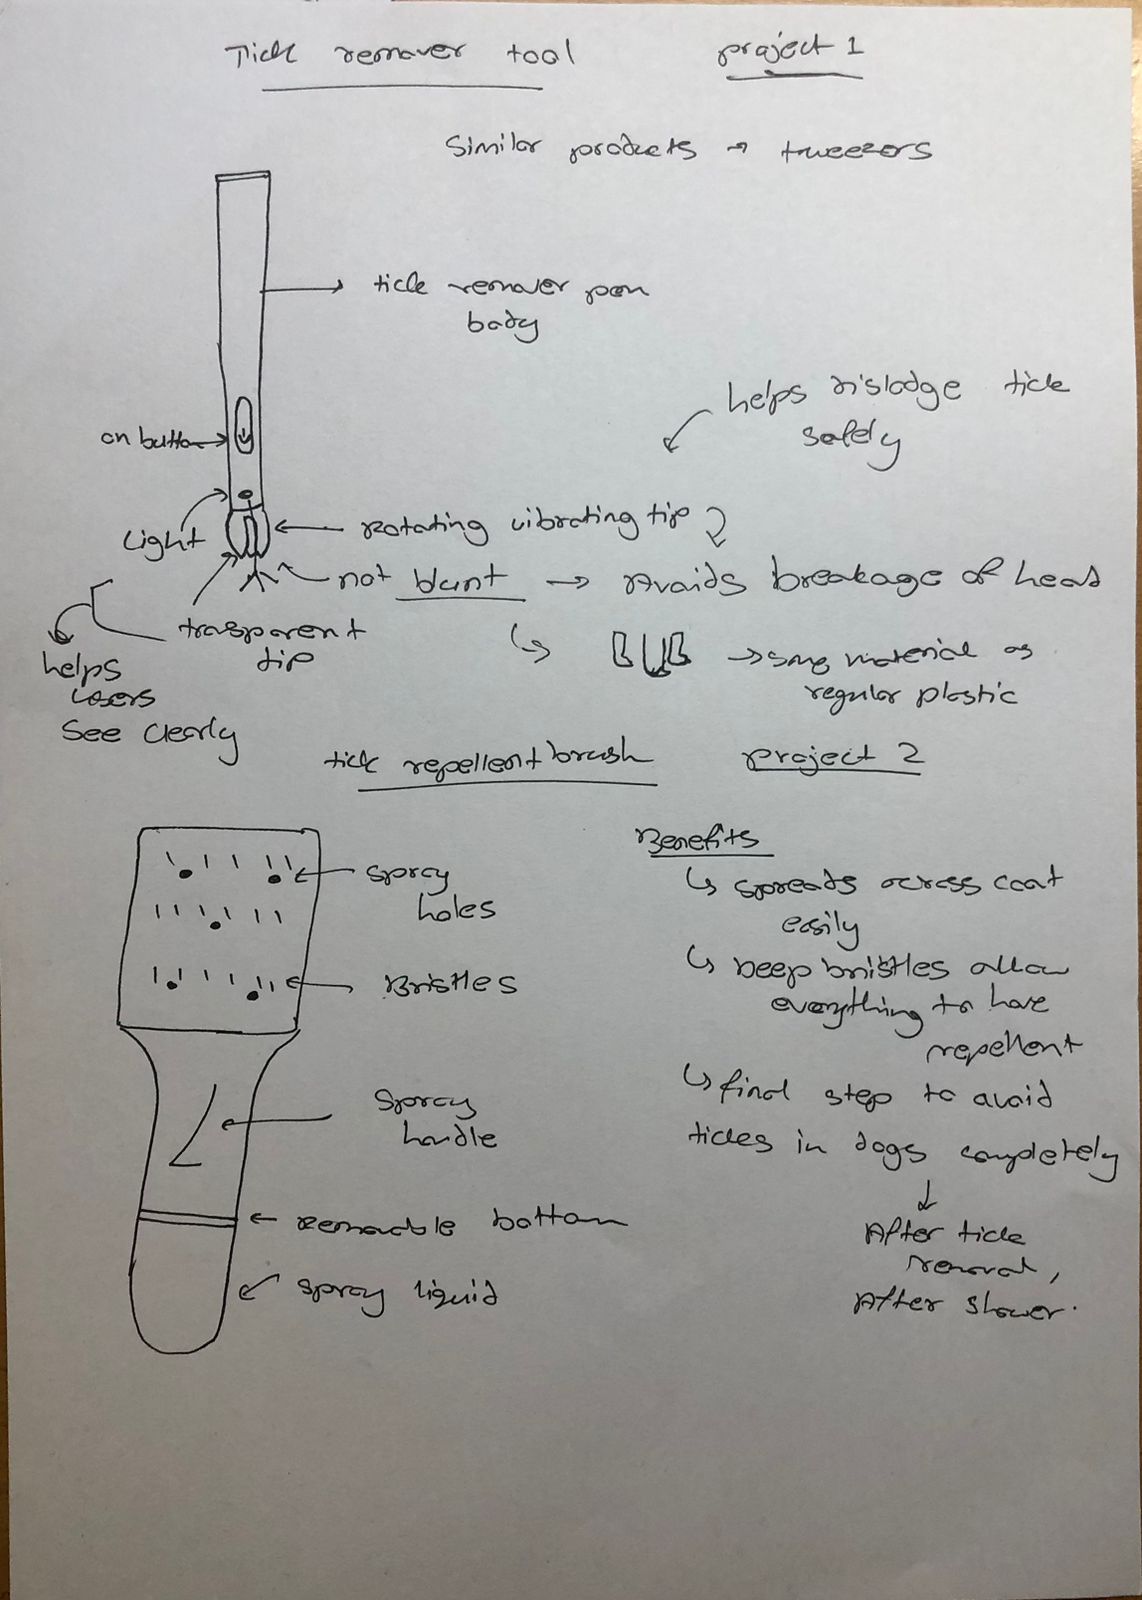 Tick remover tool project 1
Similar products → tweezers
tick remover pen
body
helps dislodge tick
safely
on button
Light
Rotating vibrating tip
not blunt → Avoids breakage of head
trasparent
tip
→ same material as
regular plastic
helps
users
see clearly
tick repellent brush project 2
spray
holes
Bristles
spray
handle
removable bottom
spray liquid
Benefits
↳ spreads across coat
easily
↳ Deep bristles allow
everything to have
repellent
↳ final step to avoid
ticks in dogs completely
↓
After tick
removal,
After shower.